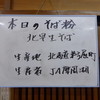 本日のそば粉
北早生そば
生産地 北海道
生産者 JA